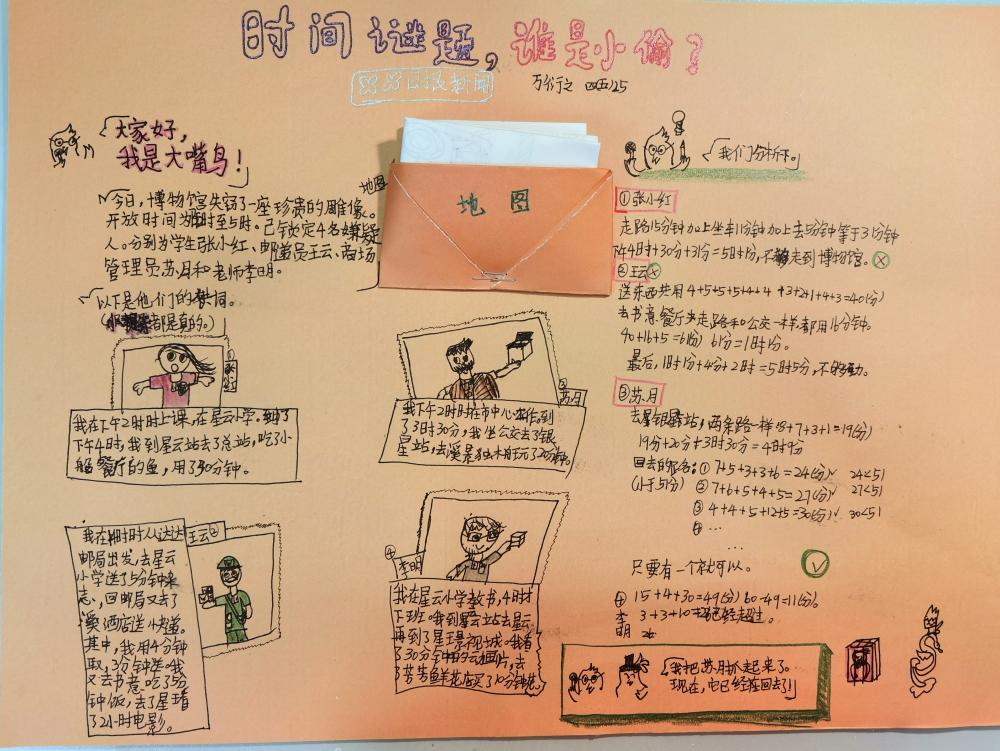 时间谜题，谁是小偷？
日报新闻
大家好，
我是大嘴鸟！
今日，博物馆失窃了一座珍贵的雕像。
开放时间为时至5时。已锁定4名嫌疑
人。分别为学生张小红、邮递员王云、商场
管理员苏月和老师李明。
以下是他们的词。
都是真的。）
地图
地图
我在下午2时时上课，在星云小学。
下午4时，我到星云站去了总站，吃了小
船餐厅的鱼，用了30分钟。
王云②
邮局出发，去星云
小学送了5分钟来
志，回邮局又去了
酒店送快递。
其中，我用4分钟
取，3分钟送。我
又去书意吃了5分
钟饭，去了星
了2小时电影。
②
苏月
我下午2时时在市中心工作，到
了3时30分，我坐公交去了银
星站，去溪景独木舟玩了20分钟。
④
李明
我在星云小学教书，4时才
下班。我到星云站去星云
再到了星景视城。我看
了30分钟的云图片，去
芳芳鱼鲜花店买了10分钟花。
我们分析下。
①张小红
走路15分钟加上坐车11分钟加上去5分钟等于31分钟
下午4时+30分+31分=5时1分，不够走到博物馆。
②王云
送东西共用4+5+5+5+4+4+3+2+1+4+3=40(分)
去书意餐厅坐走路和公交一样都用16分钟。
40+16+5=61(分) 61分=1时1分。
最后，1时1分+4分+2时=5时5分，不够动。
③苏月
去星银站，两条路一样8+7+3+1=19(分)
19分+20分+3时30分=4时9分
回去的：①7+5+3+3+6=24(分) 24<51
(小于51分) ②7+6+5+4+5=27(分) 27<51
③4+4+5+12+5=30(分) 30<51
④…
…
只要有一个就可以。
④ 15+4+30=49(分) 60-49=11(分)。
李 3+3+10已经超过。
明
我把苏月抓起来了。
现在，它已经在回去了！